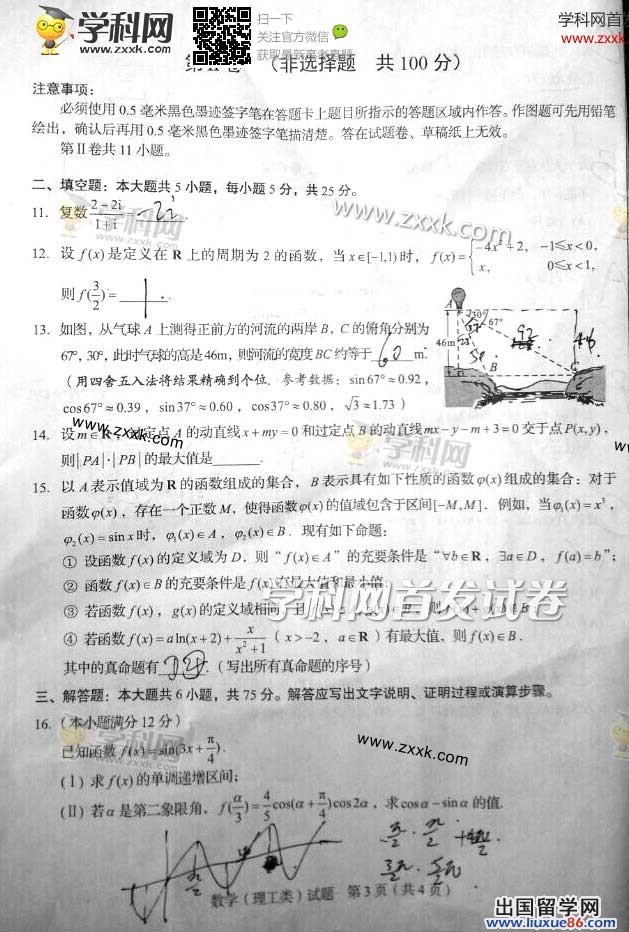 学科网
www.zxxk.com
扫一下
关注官方微信
获取最新高考真题
学科网首发
www.zxxk
(非选择题 共100分)
注意事项:
必须使用0.5毫米黑色墨迹签字笔在答题卡上题目所指示的答题区域内作答。作图题可先用铅笔
绘出，确认后再用0.5毫米黑色墨迹签字笔描清楚。答在试题卷、草稿纸上无效。
第Ⅱ卷共11小题。
二、填空题：本大题共5小题，每小题5分，共25分。
11. 复数 (2-2i)/(1+i) = -2i.
学科网
www.zxxk.com
www.zxxk.com
12. 设f(x)是定义在R上的周期为2的函数，当x∈[-1,1)时，f(x)={-4x²+2, -1≤x<0, x, 0≤x<1,
则f(3/2)= 1.
13. 如图，从气球A上测得正前方的河流的两岸B，C的俯角分别为
67°, 30°, 此时气球的高是46m, 则河流的宽度BC约等于 60 m.
(用四舍五入法将结果精确到个位. 参考数据: sin67°≈0.92,
cos67°≈0.39, sin37°≈0.60, cos37°≈0.80, √3≈1.73)
A 30° 67° 92
46m 46
B C
www.zxxk.com
14. 设m∈R, 过定点A的动直线x+my=0和过定点B的动直线mx-y-m+3=0交于点P(x,y),
则|PA|·|PB|的最大值是.
学科网
www.zxxk.com
15. 以A表示值域为R的函数组成的集合，B表示具有如下性质的函数φ(x)组成的集合：对于
函数φ(x), 存在一个正数M, 使得函数φ(x)的值域包含于区间[-M,M]. 例如, 当φ₁(x)=x³,
φ₂(x)=sin x时, φ₁(x)∈A, φ₂(x)∈B. 现有如下命题:
① 设函数f(x)的定义域为D, 则“f(x)∈A”的充要条件是“∀b∈R, ∃a∈D, f(a)=b”;
② 函数f(x)∈B的充要条件是f(x)有最大值和最小值
学科网首发试卷
③ 若函数f(x), g(x)的定义域相同, 且
④ 若函数f(x)=a ln(x+2)+x/(x²+1) (x>-2, a∈R)有最大值, 则f(x)∈B.
其中的真命题有. (写出所有真命题的序号)
三、解答题：本大题共6小题，共75分。解答应写出文字说明、证明过程或演算步骤。
16. (本小题满分12分)
学科网
www.zxxk.com
已知函数f(x)=sin(3x+π/4).
www.zxxk.com
(Ⅰ) 求f(x)的单调递增区间;
(Ⅱ) 若α是第二象限角, f(α/3)=4/5cos(α+π/4)cos2α, 求cosα-sinα的值.
数学(理工类)试题 第3页(共4页)
出国留学网
www.liuxue86.com